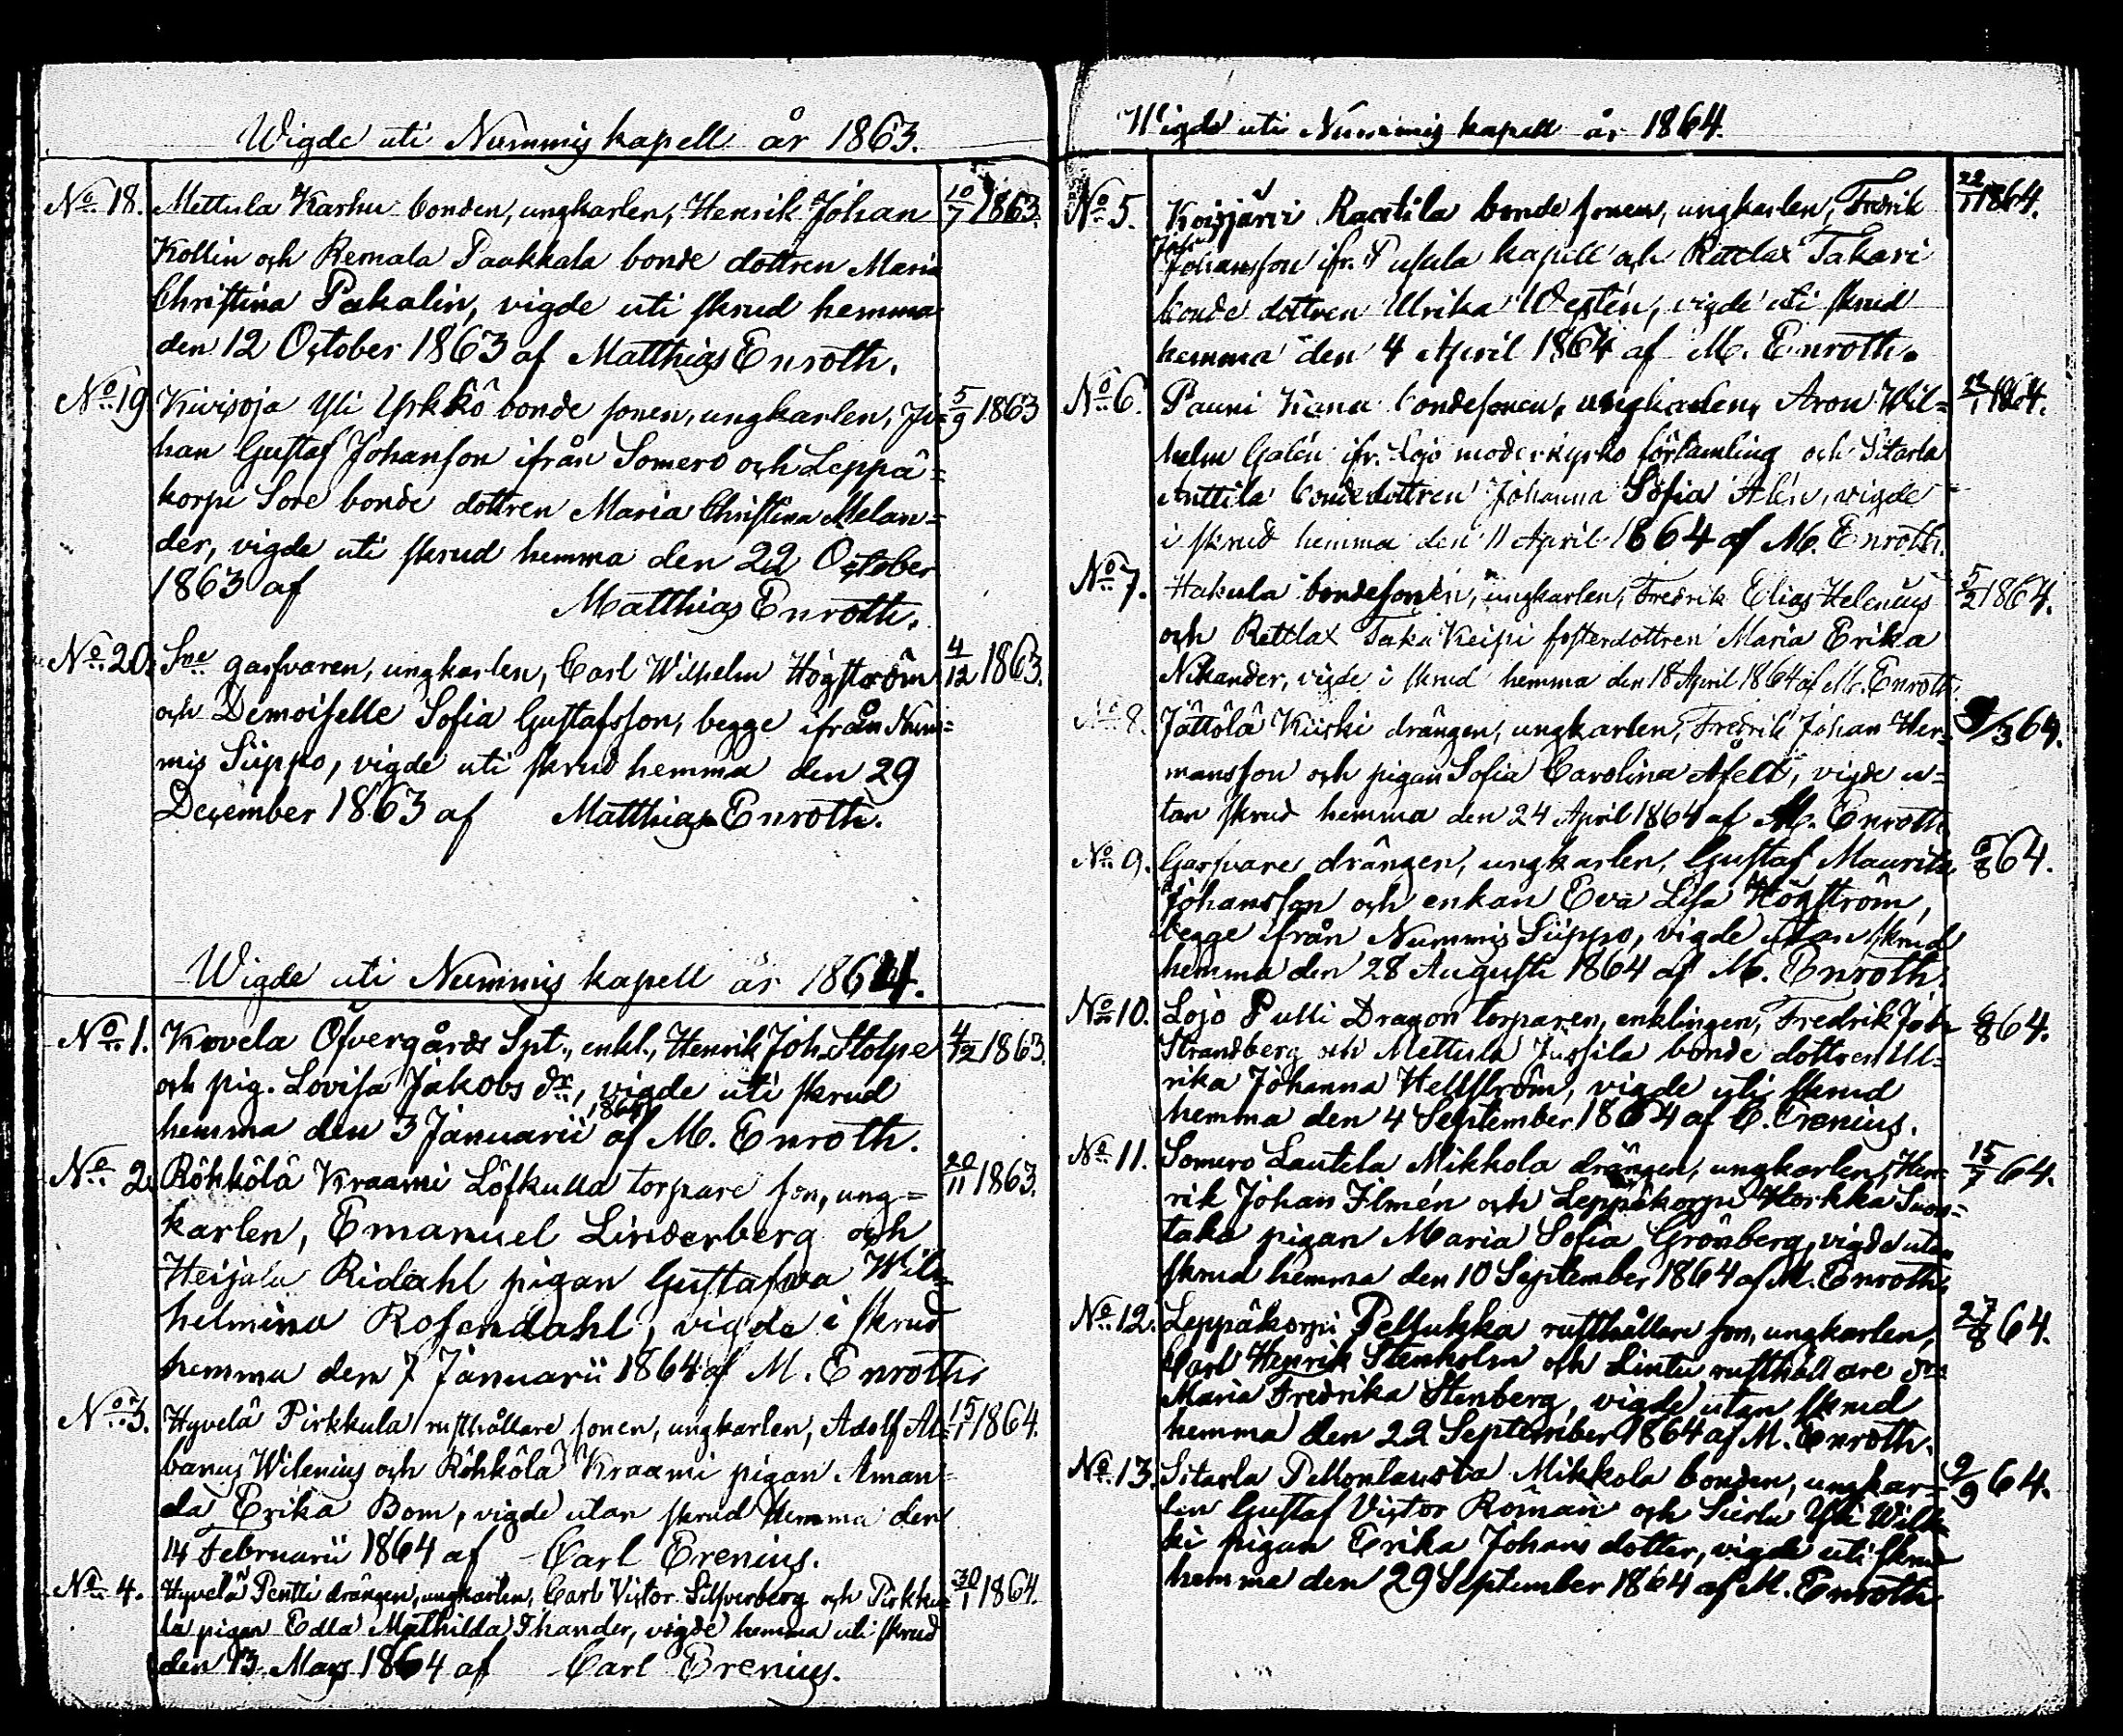 Wigde uti Nummis kapell år 1863.
No 18. Mettula Karhu bonden, ungkarlen, Henrik Johan 10/7 1863.
Kollin och Remala Paakkala bonde dottren Maria
Christina Pakalin, vigde uti skrud hemma
den 12 October 1863 af Matthias Enroth.
No 19 Kivisoja Yli Yrkkö bonde sonen, ungkarlen, Jo= 5/9 1863
han Gustaf Johanson ifrån Somero och Leppä=
korpi Sore bonde dottren Maria Christina Melan=
der, vigde uti skrud hemma den 22 October
1863 af Matthias Enroth.
No 20. garfvaren, ungkarlen, Carl Wilhelm Högström 4/12 1863.
och Demoiselle Sofia Gustafsson, begge ifrån Num=
mis Siippo, vigde uti skrud hemma den 29
December 1863 af Matthias Enroth.
Wigde uti Nummis kapell år 1864.
No 1. Kovela Öfvergårds Spt., enkl., Henrik Joh. Stolpe 4/12 1863.
och pig. Lovisa Jakobs dr, vigde uti skrud
hemma den 3 Januarii 1864 af M. Enroth.
No 2. Röhkölä Kraami Löfkulla torpare son, ung= 20/11 1863.
karlen, Emanuel Linderberg och
Heijala Ridahl pigan Gustafva Wil=
helmina Rosendahl, vigde i skrud
hemma den 7 Januarii 1864 af M. Enroth.
No 3. Hyvelä Pirkkula rusthållare sonen, ungkarlen, Adolf Al= 15/1 1864.
banus Wilenius och Röhkölä Kraami pigan Aman=
da Erika Bom, vigde utan skrud hemma den
14 Februarii 1864 af Carl Erenius.
No 4. Hyvelä Pentti drängen, ungkarlen, Carl Victor Silfverberg och Pirkku= 30/1 1864.
la pigan Edla Mathilda Ihander, vigde hemma uti skrud
den 13 Mars 1864 af Carl Erenius.
Wigde uti Nummis kapell år 1864.
No 5. Koisjärvi Raatila bonde sonen, ungkarlen, Fredrik 22/1 1864.
Johansson ifr. Pusula kapell och Rettlax Takari
bonde dottren Ulrika Westén, vigde uti skrud
hemma den 4 April 1864 af M. Enroth.
No 6. Pauni Kana bondesonen, ungkarlen, Aron Wil= 1864.
helm Galén ifr. Lojo moderkyrko församling och Sitarla
Anttila bondedottren Johanna Sofia Alén, vigde
i skrud hemma den 11 April 1864 af M. Enroth.
No 7. Hakula bondesonen, ungkarlen, Fredrik Elias Helenius 5/2 1864.
och Rettlax Taka Keipi fosterdottren Maria Erika
Nikander, vigde i skrud hemma den 18 April 1864 af M. Enroth.
No 8. Jättölä Kiiski drängen, ungkarlen, Fredrik Johan Her= 9/3 64.
mansson och pigan Sofia Carolina Afelt, vigde u=
tan skrud hemma den 24 April 1864 af M. Enroth.
No 9. Garfvare drängen, ungkarlen, Gustaf Mauritz 6/8 64.
Johansson och enkan Eva Lisa Högström,
begge ifrån Nummis Siippo, vigde utan skrud
hemma den 28 Augusti 1864 af M. Enroth.
No 10. Lojo Pulli Dragon torparen, enklingen, Fredrik Joh. 6/8 64.
Strandberg och Mettula Jussila bonde dottren Ul=
rika Johanna Hellström, vigde uti skrud
hemma den 4 September 1864 af C. Erenius.
No 11. Somero Lautela Mikkola drängen, ungkarlen, Hen= 15/7 64.
rik Johan Ilmén och Leppäkorpi Horkka Suon=
taka pigan Maria Sofia Grönberg, vigde utan
skrud hemma den 10 September 1864 af M. Enroth.
No 12. Leppäkorpi Peltukka rusthållare son, ungkarlen, 27/8 64.
Carl Henrik Stenholm och Lintu rusthållare drn
Maria Fredrika Stenberg, vigde utan skrud
hemma den 22 September 1864 af M. Enroth.
No 13. Sitarla Pellonlausta Mikkola bonden, ungkar= 9/9 64.
len Gustaf Victor Röman och Sierla Yli Wilk=
ki pigan Erika Johans dotter, vigde uti skrud
hemma den 29 September 1864 af M. Enroth